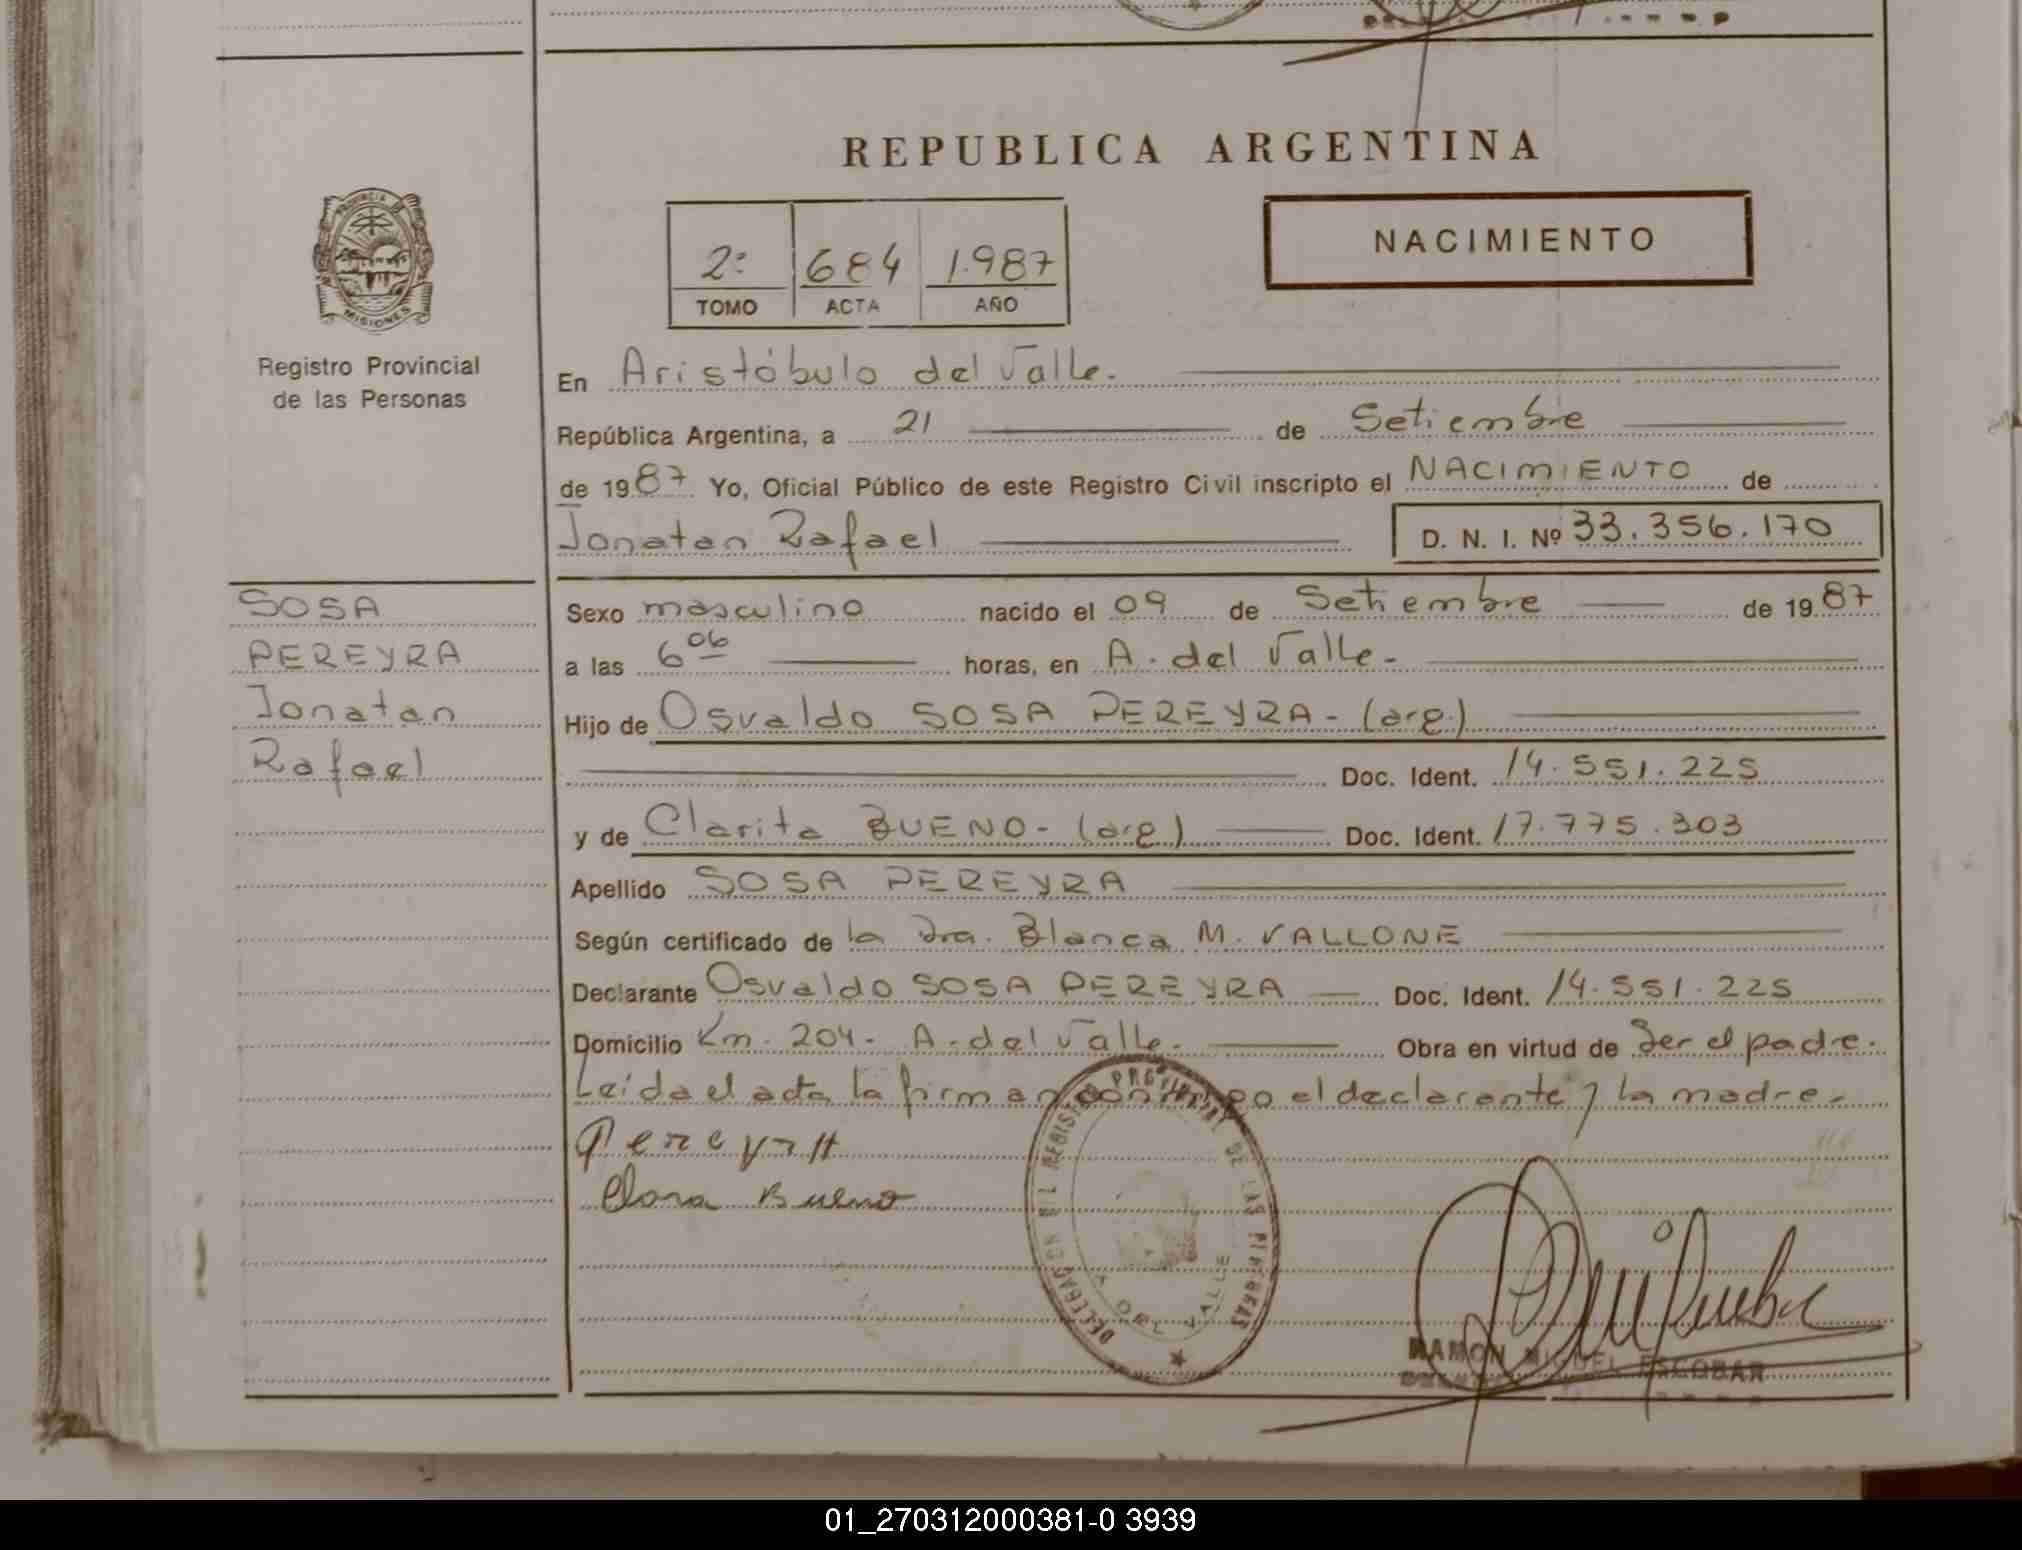 REPUBLICA ARGENTINA
PROVINCIA DE
MISIONES
Registro Provincial
de las Personas
2º
684
1.987
TOMO
ACTA
AÑO
NACIMIENTO
En Aristóbulo del Valle.
República Argentina, a 21 de Setiembre
de 1987 Yo, Oficial Público de este Registro Civil inscripto el NACIMIENTO de
Jonatan Rafael D. N. I. Nº 33.356.170
SOSA
PEREYRA
Jonatan
Rafael
Sexo masculino nacido el 09 de Setiembre de 1987
a las 6 06 horas, en A. del Valle.-
Hijo de Osvaldo SOSA PEREYRA- (arg.)
Doc. Ident. 14.551.225
y de Clarita BUENO- (arg) Doc. Ident. 17.775.303
Apellido SOSA PEREYRA
Según certificado de la Dra. Blanca M. VALLONE
Declarante Osvaldo SOSA PEREYRA Doc. Ident. 14.551.225
Domicilio Km. 204- A. del Valle.- Obra en virtud de Ser el padre.
Leída el acta la firman conmigo el declarante y la madre.-
Pereyra
Clara Bueno
DELEGACION DEL REGISTRO PROVINCIAL DE LAS PERSONAS
A DEL VALLE
RAMON MIGUEL ESCOBAR
01_270312000381-0 3939